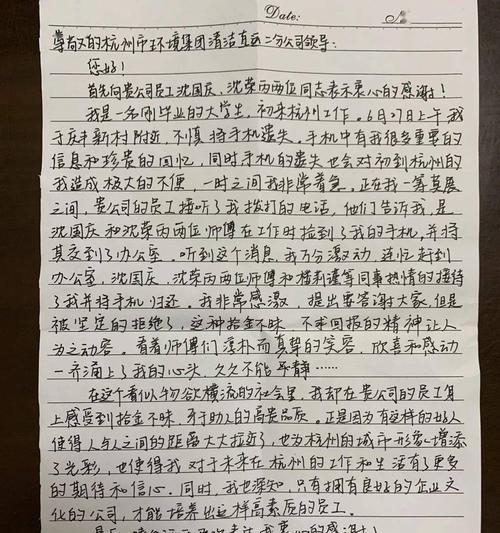 Date:
尊敬的杭州市环境集团清洁直运二分公司领导:
您好!
首先向贵公司员工沈国庆、沈荣丙两位同志表示衷心的感谢!
我是一名刚毕业的大学生,初来杭州工作。6月27日上午我
于庆丰新村附近,不慎将手机遗失。手机中有我很多重要的
信息和珍贵的回忆,同时手机的遗失也会对初到杭州的
我造成极大的不便,一时之间我非常着急,正在我一筹莫展
之间,贵公司的员工接听了我拨打的电话,他们告诉我,是
沈国庆和沈荣丙两位师傅在工作时捡到了我的手机,并将
其交到了办公室。听到这个消息,我万分激动,连忙赶到
办公室,沈国庆、沈荣丙两位师傅和杨利潼等同事热情的接待
了我并将手机归还。我非常感激,提出要答谢大家,但是
被坚定的拒绝了,这种拾金不昧,不求回报的精神让人
为之动容。看着师傅们淳朴而真挚的笑容,欣喜和感动
一齐涌上了我的心头,久久不能平静……
在这个看似物欲横流的社会里,我却在贵公司的员工身
上感受到拾金不昧,乐于助人的高贵品质。正是因为有这样的好人
使得人与人之间的距离大大拉近了,也为杭州的城市形象增添
了光彩,也使得我对于未来在杭州的工作和生活有了更多
的期待和信心。同时,我也深知,只有拥有良好的企业文
化的公司,才能培养出这样高素质的员工。